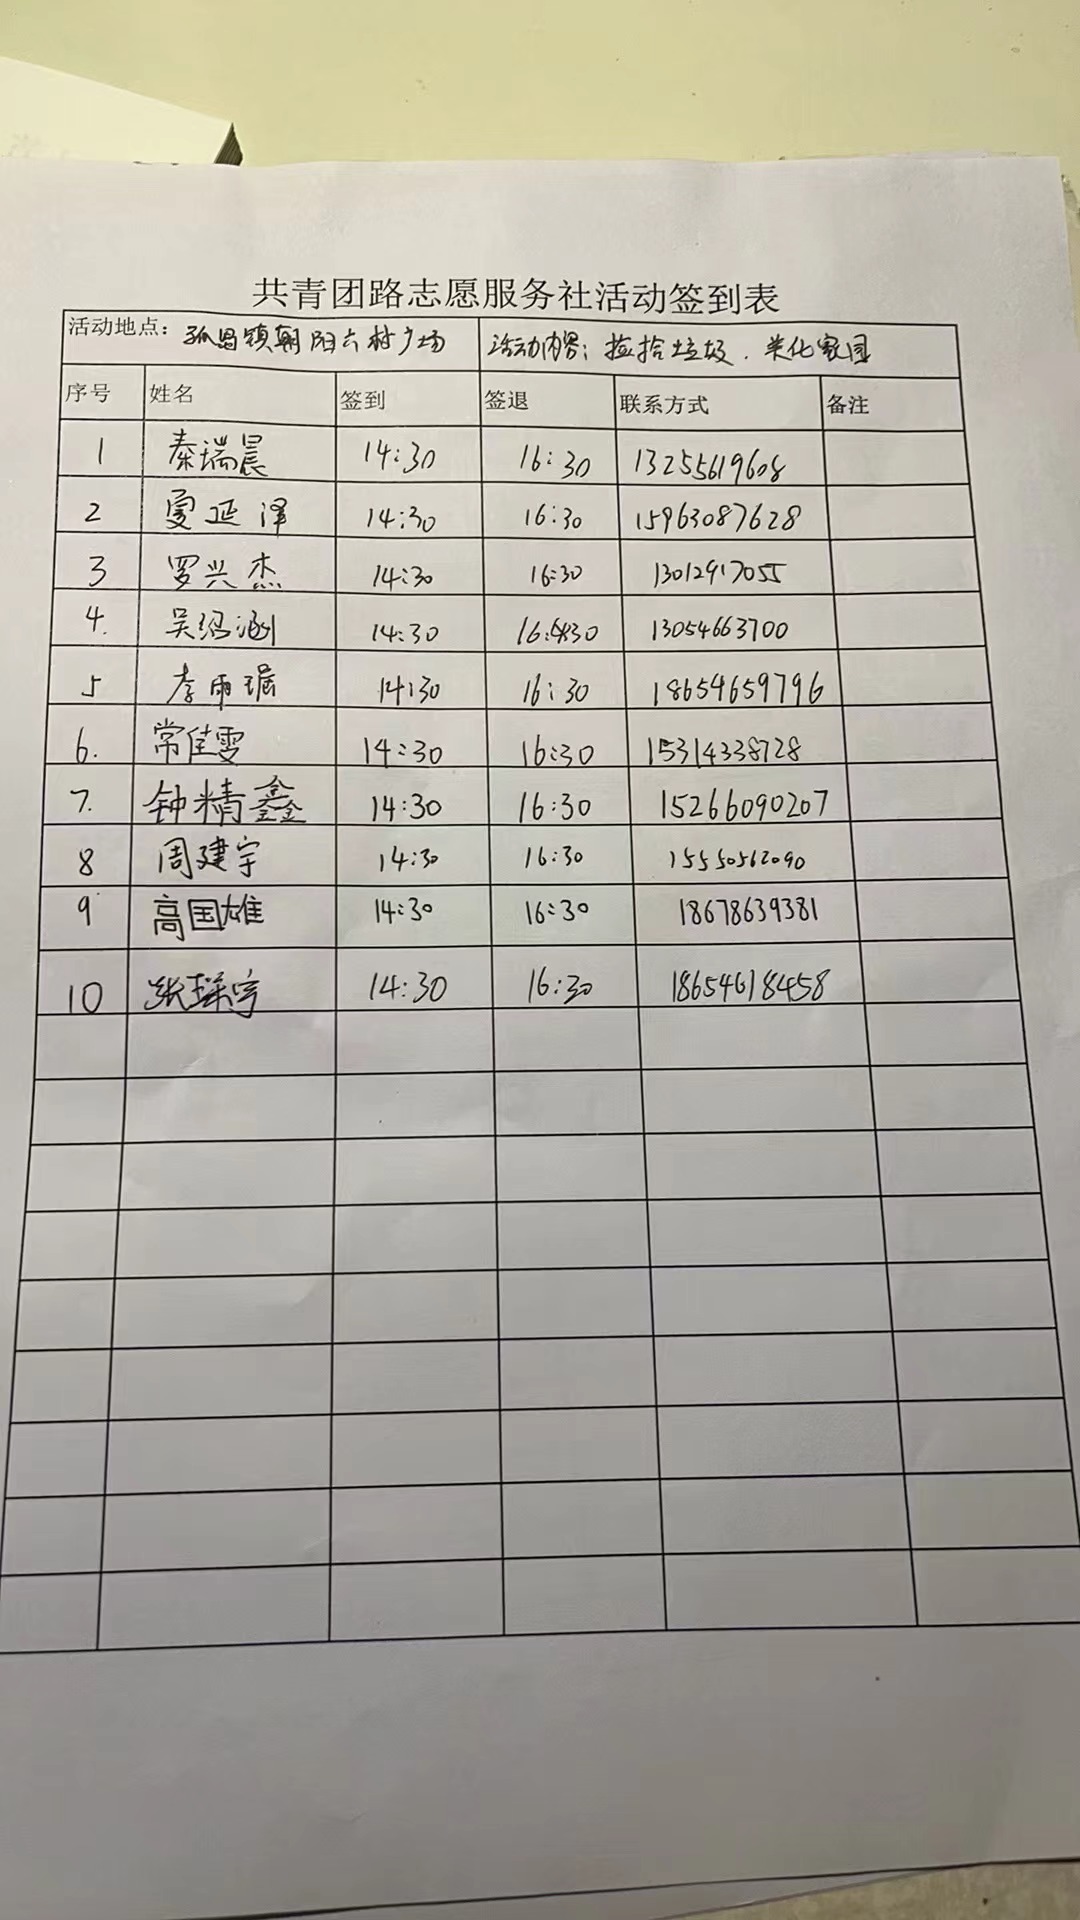 共青团路志愿服务社活动签到表
活动地点：孤岛镇朝阳六村广场 活动内容：捡拾垃圾．美化家园
序号 姓名 签到 签退 联系方式 备注
1 秦瑞晨 14:30 16:30 13255619608
2 夏延泽 14:30 16:30 15963087628
3 罗兴杰 14:30 16:30 13012917055
4. 吴绍涵 14:30 16:30 13054663700
5 李雨琚 14:30 16:30 18654659796
6. 常佳雯 14:30 16:30 15314338728
7. 钟精鑫 14:30 16:30 15266090207
8 周建宇 14:30 16:30 15550562090
9 高国雄 14:30 16:30 18678639381
10 张琛宇 14:30 16:30 18654618458